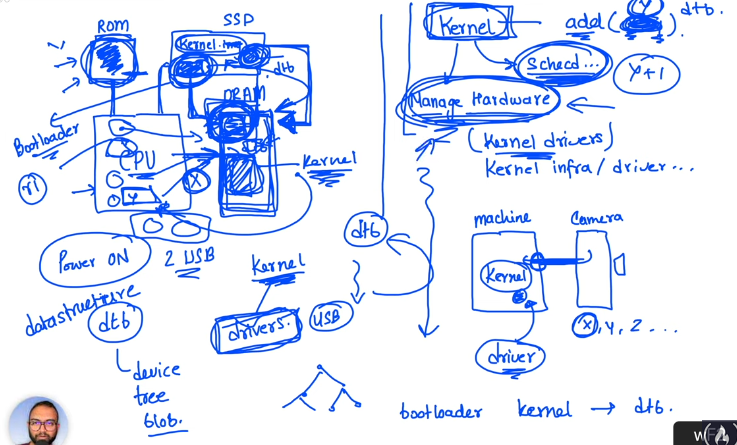 ROM
SSP
Kernel.im
dtb
DRAM
dtb
Bootloader
CPU
r1
Y
X
Kernel
Power ON
2 USB
datastructure
dtb
device
tree
blob.
Kernel
drivers.
USB
dtb
Kernel
add(
)
Y
dtb.
Sched...
Y+1
Manage Hardware
(Kernel drivers)
Kernel infra/driver...
machine
Camera
Kernel
X, Y, Z ...
driver
bootloader kernel → dtb.